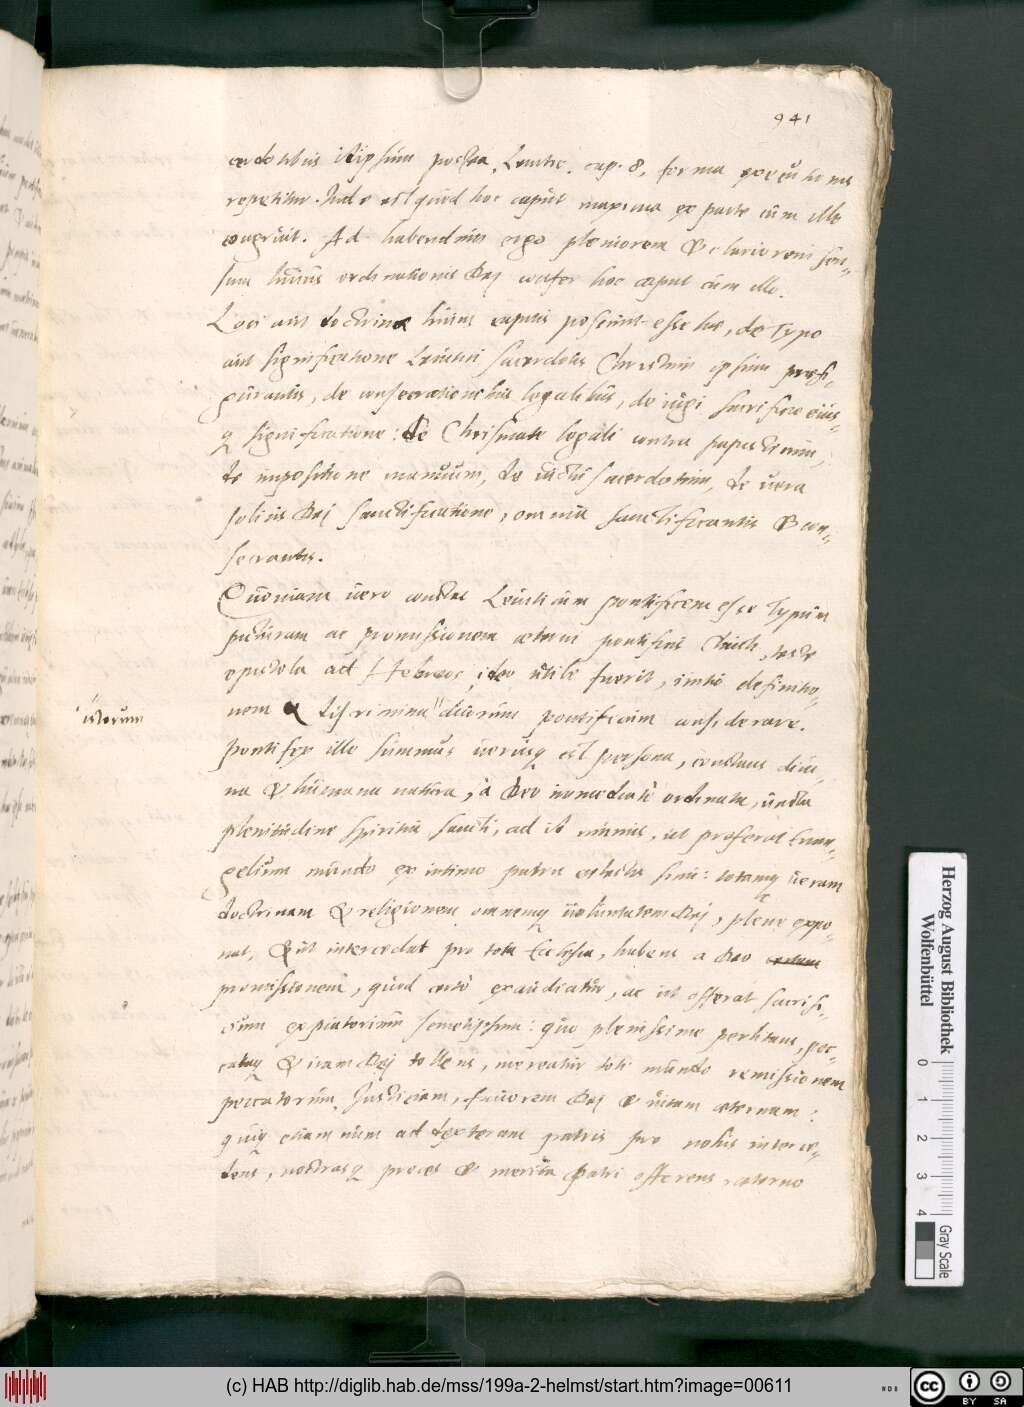 941
cerdotibus istipsum postea, Levitic. cap. 8, forma praecisionis
repetitur. Inde est quod hoc caput maxima ex parte cum illo
congruit. Ad habendum ergo pleniorem & clariorem sen-
sum huius ordinationis Dei confer hoc caput cum illo.
Loci aut doctrinae huius capitis possunt esse hae, de Typo
aut significatione Levitici sacerdotis Christum ipsum praefi-
gurantis, de consecrationibus legalibus, de iugi sacrificio eius-
q significatione: de Chrismate legali contra papisticum,
de impositione manuum, de victu sacerdotum, de vera
solius Dei sanctificatione, omnia sanctificantis & con-
secrantis.
Quoniam vero constat Leviticum pontificem esse Typum
picturam ac promissionem aeterni pontificis Christi, teste
epistola ad Hebraeos, ideo utile fuerit, imo definitio-
nem & discrimina " duorum pontificum considerare.
" istorum
Pontifex ille summus verusq est persona, constans divi-
na & humana natura, à Deo immediate ordinata, uncta
plenitudine spiritus sancti, ad id muneris, ut proferat Evan-
gelium mundo ex intimo patris aeterni sinu: totamq veram
doctrinam & religionem omnemq voluntatem Dei, plene expo-
nat, & ut intercedat pro tota Ecclesia, habens a Deo
promissionem, quod certo exaudiatur, ac ut offerat sacrifi-
cium expiatorium semetipsum: quo plenissime perlitans, pec-
cataq & iram Dei tollens, mereatur toti mundo remissionem
peccatorum, Justiciam, favorem Dei & vitam aeternam:
quiq etiam num ad dexteram patris pro nobis interce-
dens, nostrasq preces & merita patri offerens, aeterno
Herzog August Bibliothek
Wolfenbüttel
0 1 2 3 4
Gray Scale
(c) HAB http://diglib.hab.de/mss/199a-2-helmst/start.htm?image=00611
cc BY SA